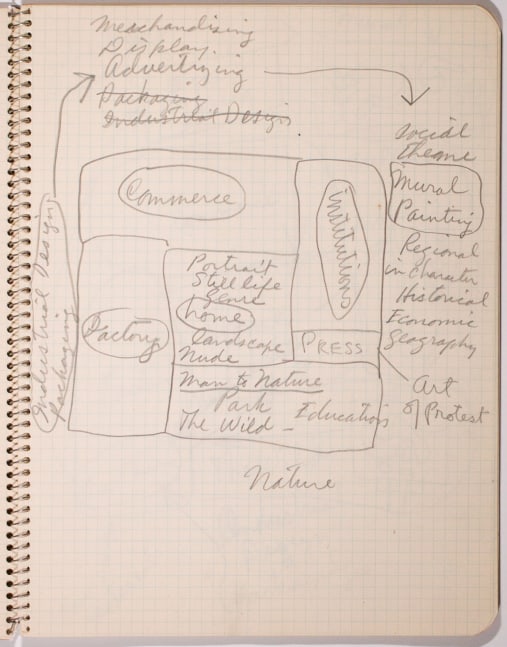 Merchandising
Display.
Advertizing
Packaging
Industrial Design
social
theme
Mural
Painting
Commerce
institutions
Industrial Design
Packaging
Regional
in character
Historical
Economic
Geography
Portrait
Still life
Genre
home
landscape
Nude
Factory
PRESS
Man to Nature
Park
The Wild - Education
Art
of Protest
Nature